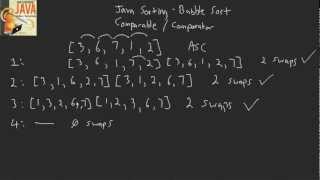 JAVA
Java Sorting - Bubble Sort
Comparable / Comparator
[3, 6, 7, 1, 2] ASC
1: [3, 6, 1, 7, 2] [3, 6, 1, 2, 7] 2 swaps ✓
2: [3, 1, 6, 2, 7] [3, 1, 2, 6, 7] 2 swaps ✓
3: [1, 3, 2, 6, 7] [1, 2, 3, 6, 7] 2 swaps ✓
4: — 0 swaps